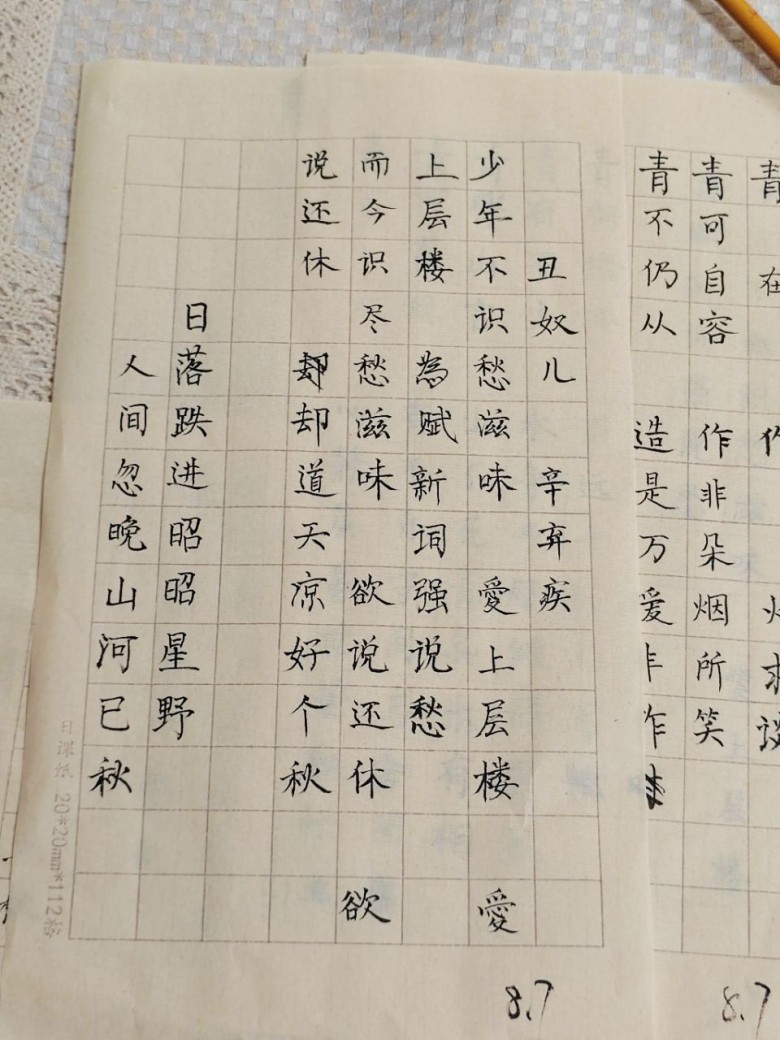 青 在
青可自容 作非朵烟所笑
青不仍从 造是万爱
8.7
丑奴儿 辛弃疾
少年不识愁滋味 愛上层楼 愛
上层楼 為赋新词强说愁
而今识尽愁滋味 欲说还休 欲
说还休 却却道天凉好个秋
日落跌进昭昭星野
人间忽晚山河已秋
8.7
日课纸 20*20mm*112格